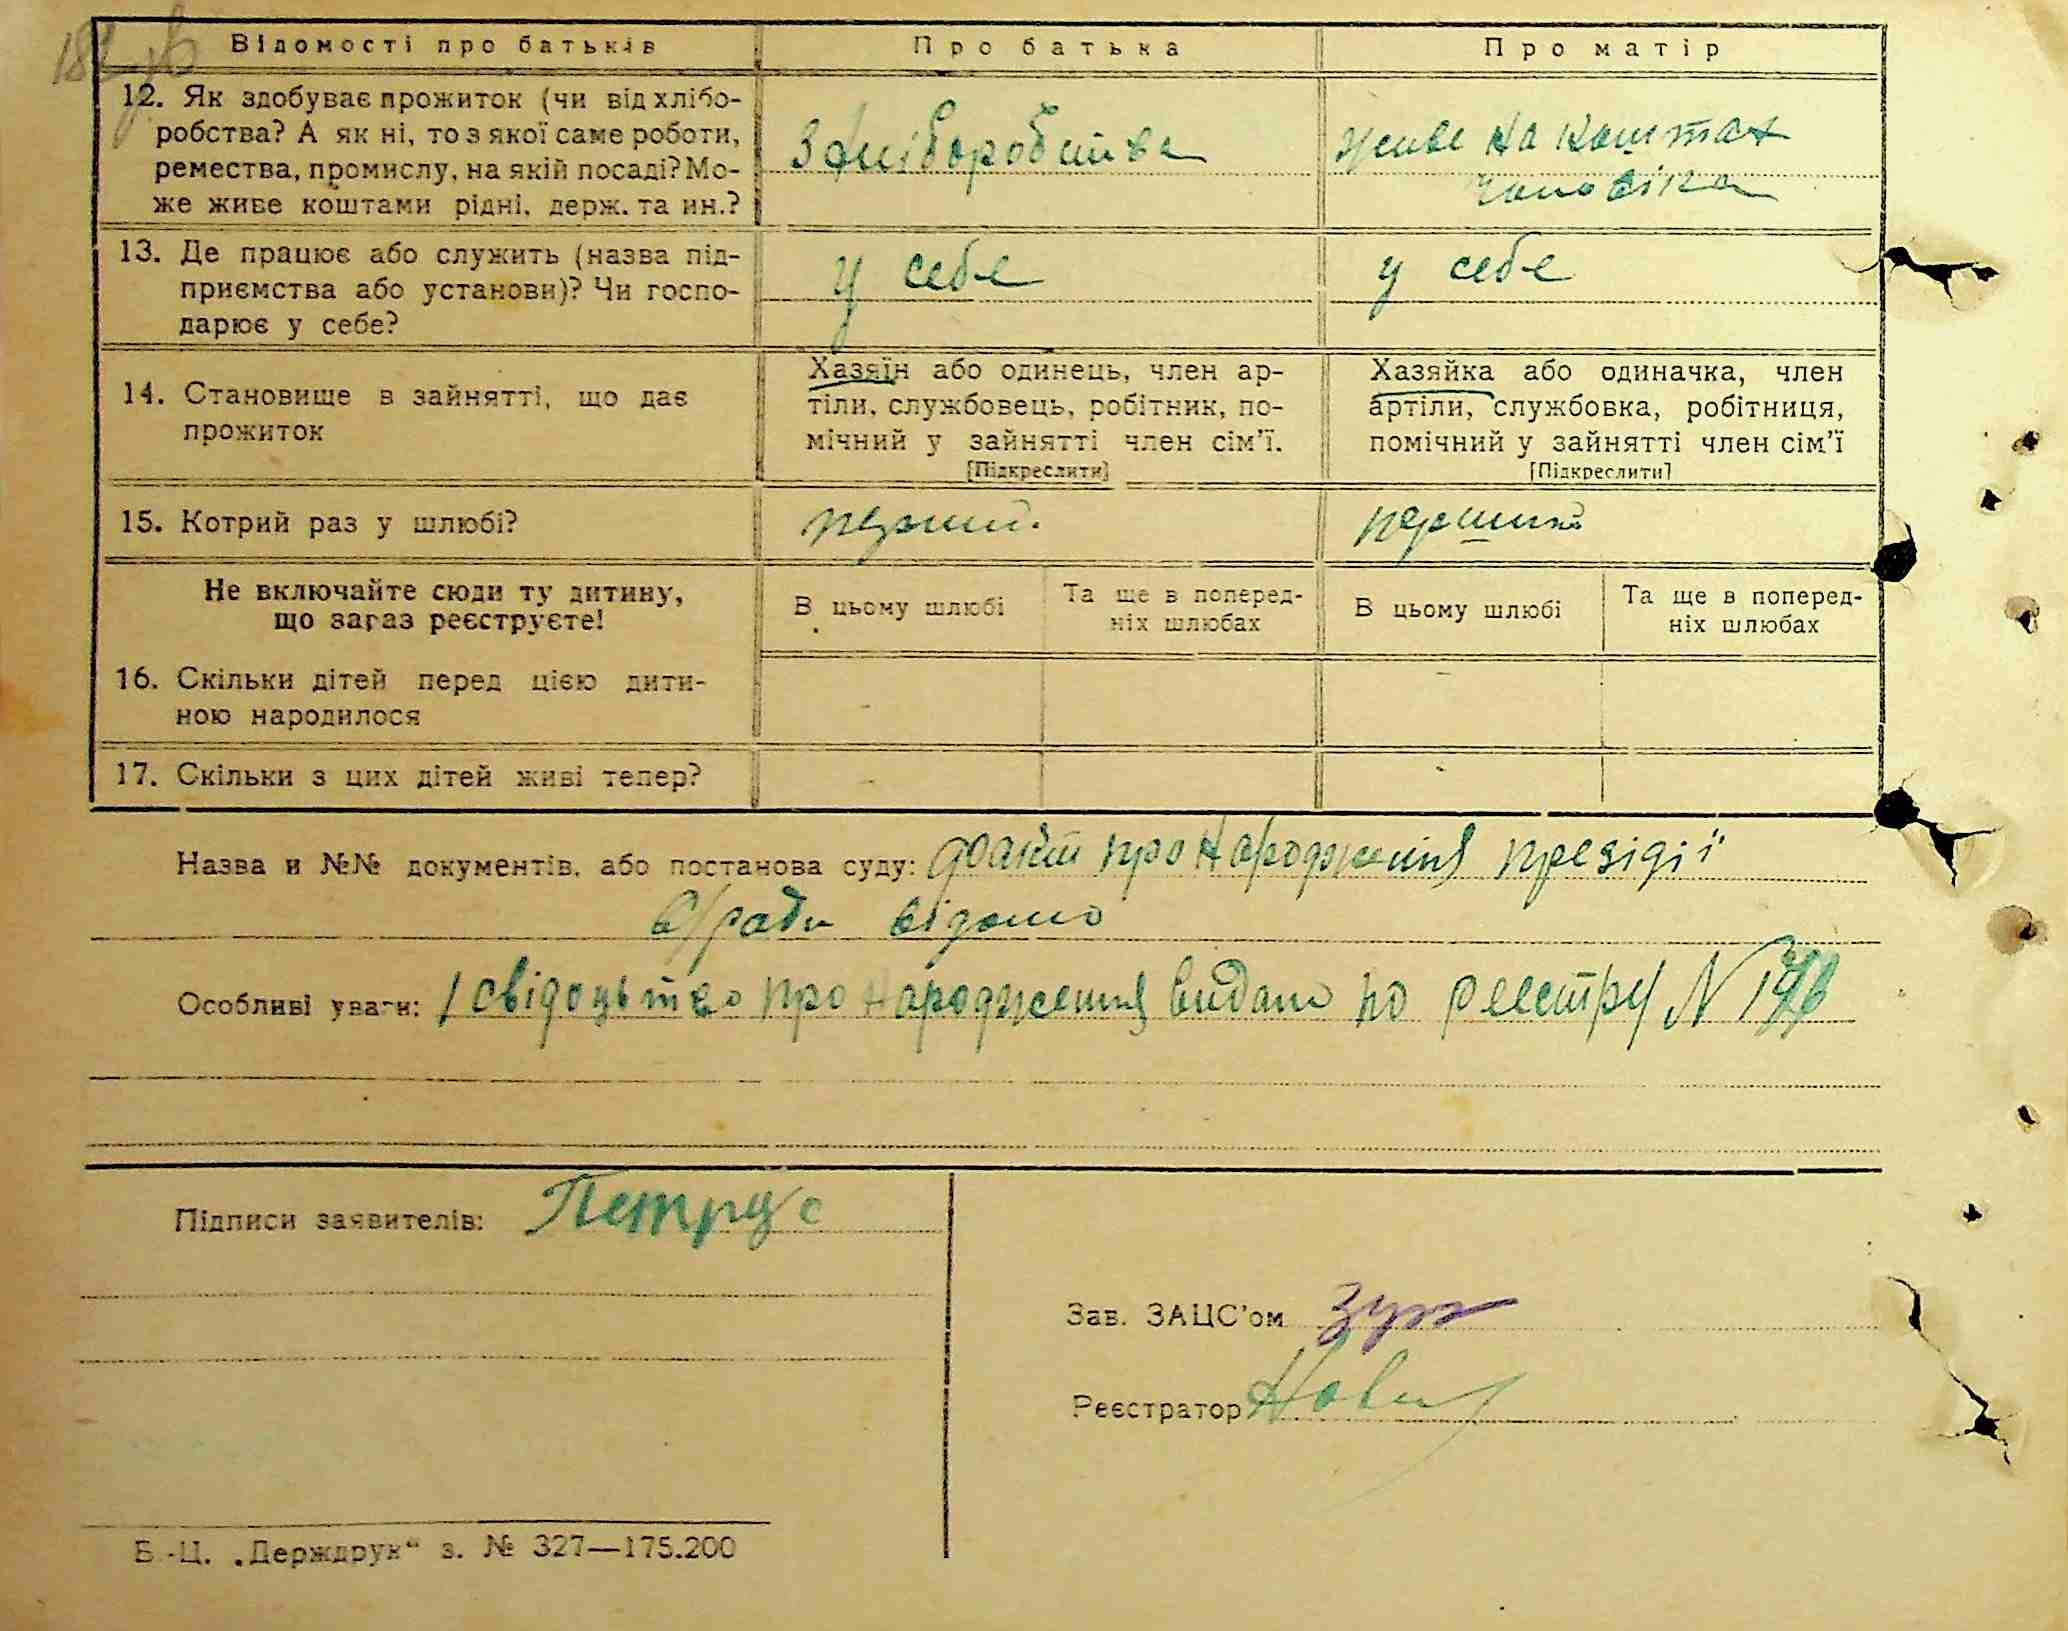 Відомості про батьків Про батька Про матір
12. Як здобуває прожиток (чи від хлібо-
робства? А як ні, то з якої саме роботи,
ремества, промислу, на якій посаді? Мо-
же живе коштами рідні, держ. та ин.?
З хліборобства
живе на коштах
чоловіка
13. Де працює або служить (назва під-
приємства або установи)? Чи госпо-
дарює у себе?
у себе
у себе
14. Становище в зайнятті, що дає
прожиток
Хазяїн або одинець, член ар-
тіли, службовець, робітник, по-
мічний у зайнятті член сім'ї.
[Підкреслити]
Хазяйка або одиначка, член
артіли, службовка, робітниця,
помічний у зайнятті член сім'ї
[Підкреслити]
15. Котрий раз у шлюбі?
перший.
перший
Не включайте сюди ту дитину,
що зараз реєструєте!
В цьому шлюбі
Та ще в поперед-
ніх шлюбах
В цьому шлюбі
Та ще в поперед-
ніх шлюбах
16. Скільки дітей перед цією дити-
ною народилося
- -
17. Скільки з цих дітей живі тепер?
- -
Назва и №№ документів, або постанова суду: факт про народження презідії
с/ради відомо
Особливі уваги: свідоцьтво про народження видано по реестру N
Підписи заявителів: Петрус
Зав. ЗАЦС'ом
Реєстратор
Б.-Ц. „Держдрук“ з. № 327—175.200